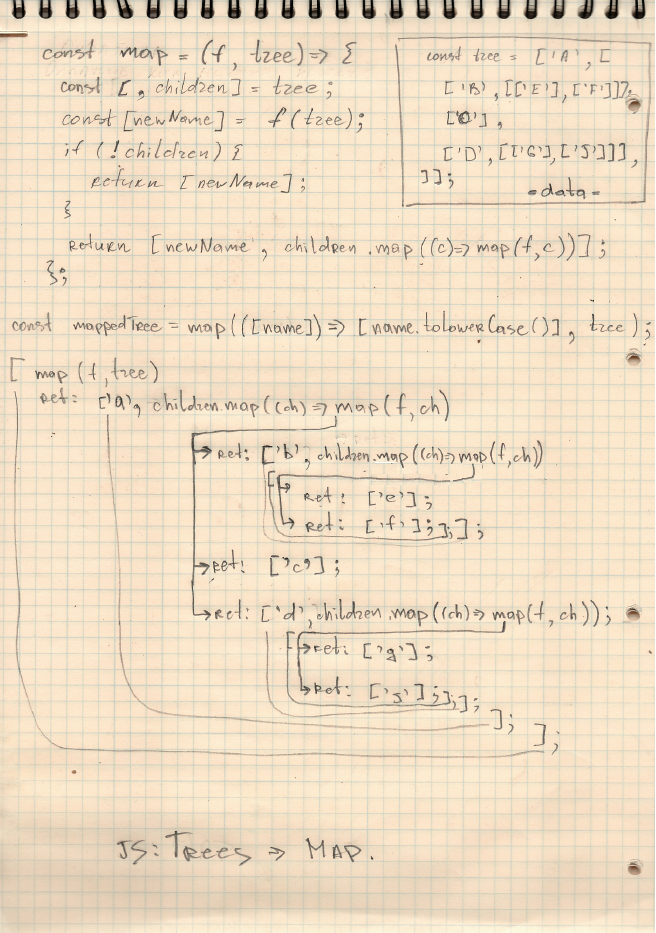 const map = (f, tree) => {
const [, children] = tree;
const [newName] = f(tree);
if (!children) {
return [newName];
}
return [newName, children.map((c)=> map(f,c))];
};
const tree = ['A', [
['B', [['E'],['F']]],
['C'],
['D', [['G'],['J']]],
]];
- data -
const mappedTree = map(([name]) => [name.toLowerCase()], tree);
[ map (f, tree)
ret: ['a', children.map((ch) => map(f, ch)
ret: ['b', children.map((ch)=> map(f,ch))
[[ ret: ['e'];
ret: ['f'];];];
ret: ['c'];
ret: ['d', children.map((ch)=> map(f, ch));
[[ ret: ['g'];
ret: ['j'];];];
];
];
JS: Trees => MAP.